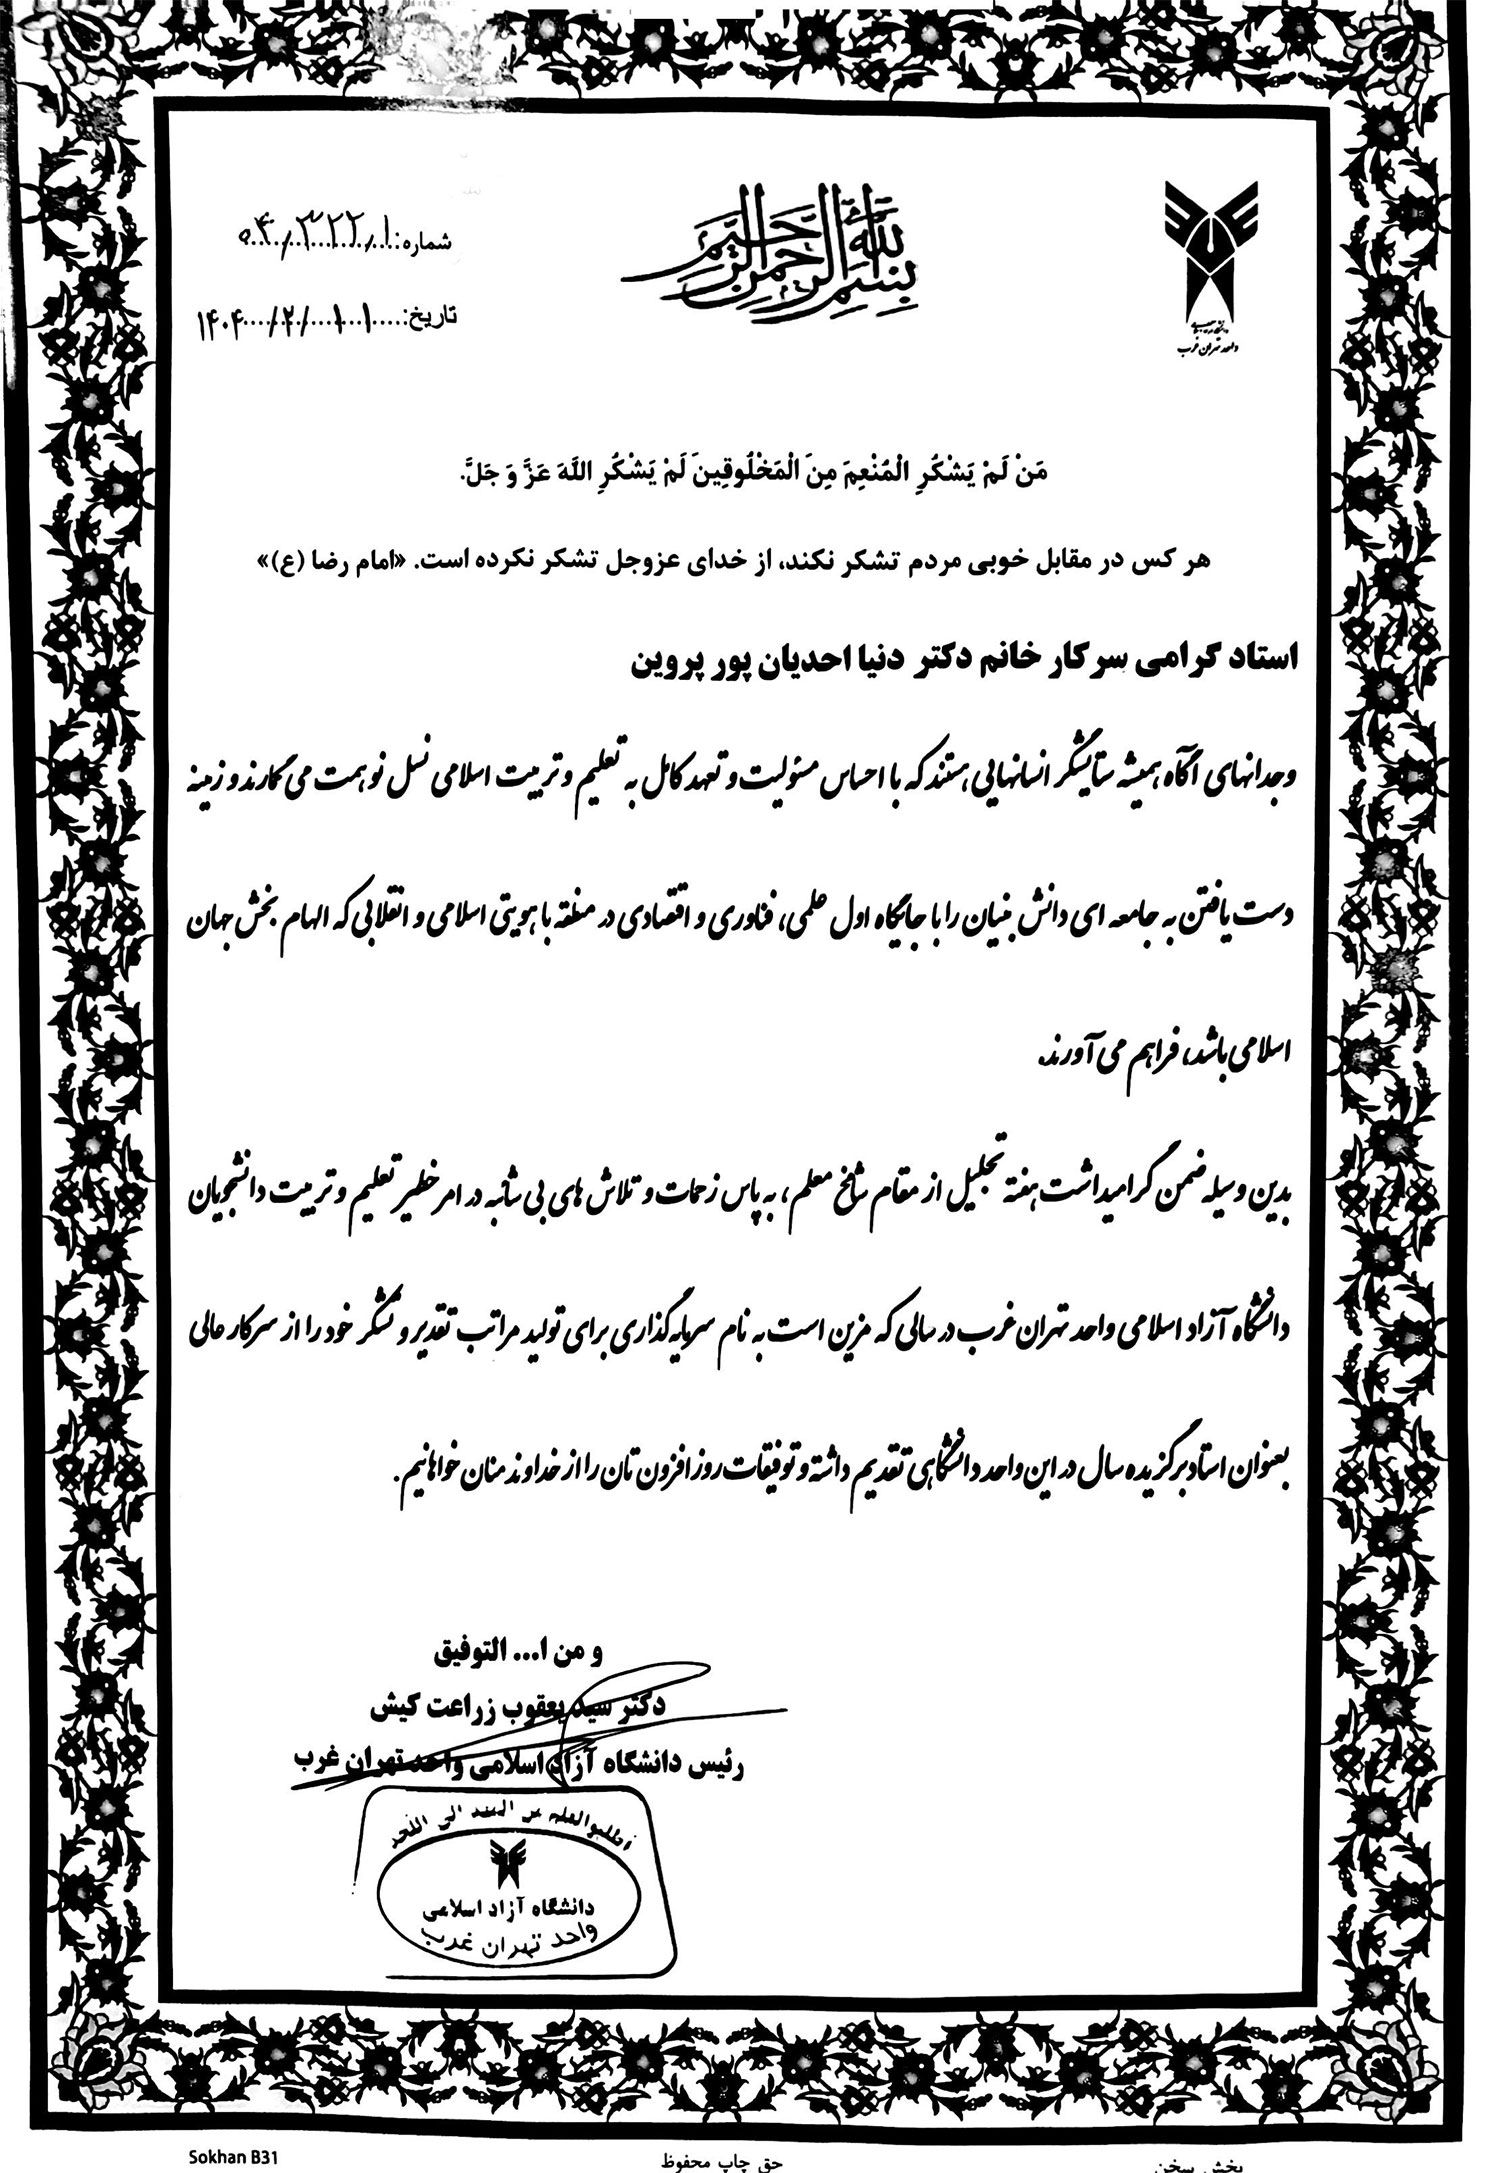 بسم الله الرحمن الرحیم
واحد تهران غرب
شماره:
تاریخ: ۱۴۰۴/۲/۱۱
مَنْ لَمْ يَشْكُرِ الْمُنْعِمَ مِنَ الْمَخْلُوقِينَ لَمْ يَشْكُرِ اللَّهَ عَزَّ وَ جَلَّ.
هر کس در مقابل خوبی مردم تشکر نکند، از خدای عزوجل تشکر نکرده است. «امام رضا (ع)»
استاد گرامی سرکار خانم دکتر دنیا احدیان پور پروین
وجدانهای آگاه همیشه ستایشگر انسانهایی هستند که با احساس مسئولیت و تعهد کامل به تعلیم و تربیت اسلامی نسل نو همت می گمارند و زمینه
دست یافتن به جامعه ای دانش بنیان را با جایگاه اول علمی، فناوری و اقتصادی در منطقه با هویتی اسلامی و انقلابی که الهام بخش جهان
اسلامی باشد، فراهم می آورند.
بدین وسیله ضمن گرامیداشت هفته تجلیل از مقام شامخ معلم، به پاس زحمات و تلاش های بی شائبه در امر خطیر تعلیم و تربیت دانشجویان
دانشگاه آزاد اسلامی واحد تهران غرب در سالی که مزین است به نام سرمایه گذاری برای تولید مراتب تقدیر و تشکر خود را از سرکار عالی
بعنوان استاد برگزیده سال در این واحد دانشگاهی تقدیم داشته و توفیقات روز افزون تان را از خداوند منان خواهانیم.
و من ا... التوفیق
دکتر سید یعقوب زراعت کیش
رئیس دانشگاه آزاد اسلامی واحد تهران غرب
اطلبوالعلم من المهد الی اللحد
دانشگاه آزاد اسلامی
واحد تهران غرب
Sokhan B31
حق چاپ محفوظ
پخش سخن